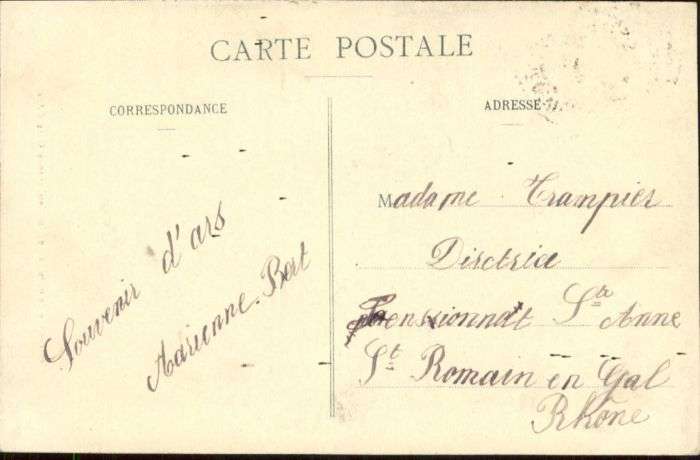 CARTE POSTALE
CORRESPONDANCE
ADRESSE
Souvenir d'ars
Marienne Bert
Madame Trampier
Directrice
Pensionnat Ste Anne
St Romain en Gal
Rhône